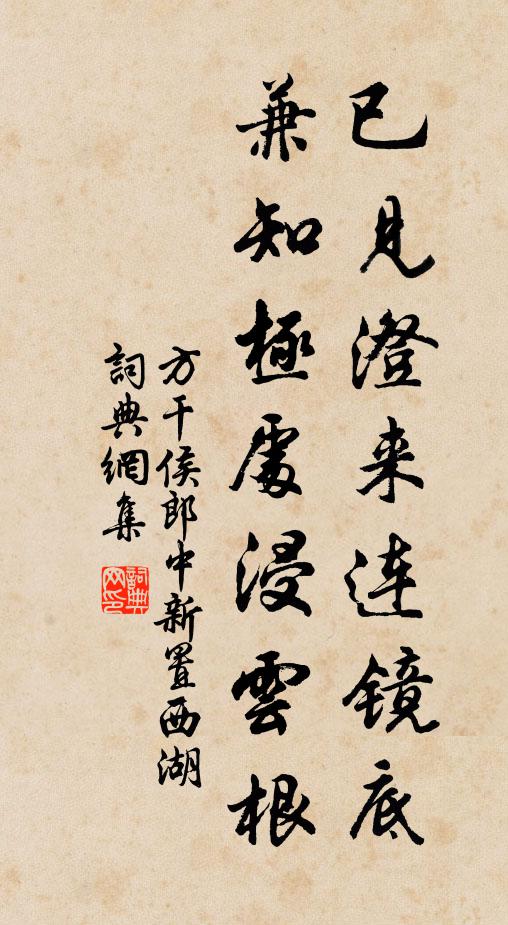 已見澄来连镜底
兼知極處浸雲根
方干侯郎中新置西湖
詞典網集
詞典网印